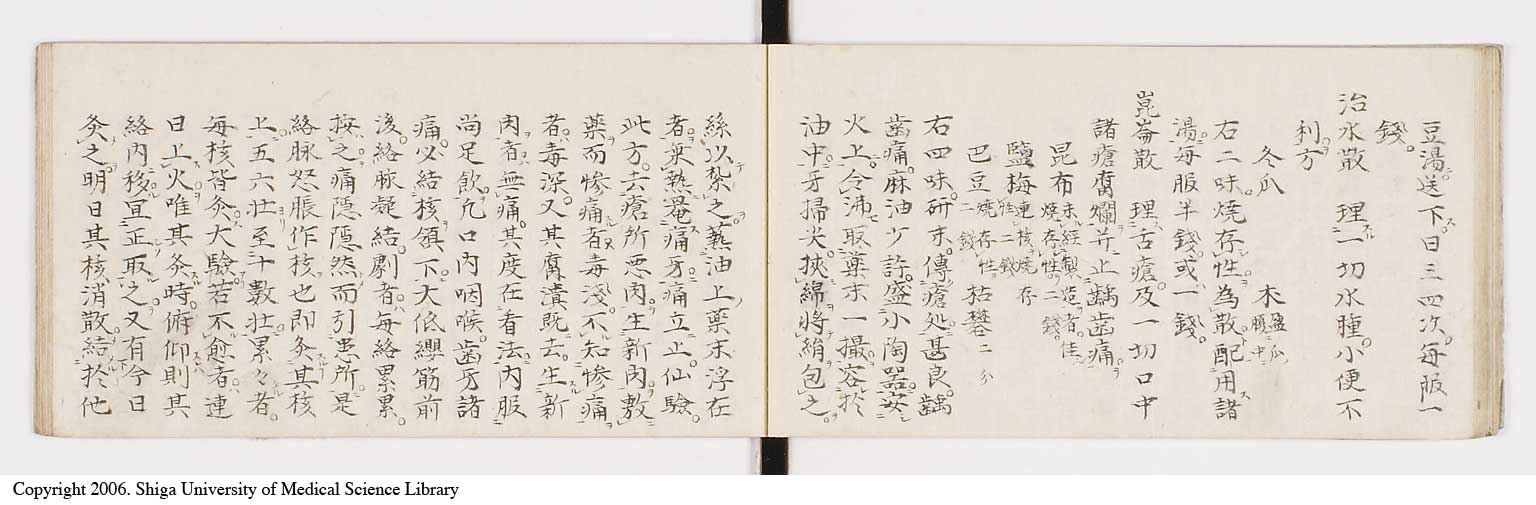 豆湯送下。日三四次。每服一
錢。
治水散　理一切水腫。小便不
利方
冬瓜　木盈瓜腹中
右二味。燒存性。為散。配用諸
湯。每服半錢。或一錢。
崑崙散　理舌瘡。及一切口中
諸瘡腐爛。并止齲齒痛。
昆布未經製造者。佳燒存性。二錢。
鹽梅連核燒存性。二錢
巴豆燒存性。二錢　枯礬二分
右四味。研末。傳瘡処。甚良。齲
齒痛。麻油少許。盛小陶器。安
火上。令沸。取藥末一撮。容於
油中。牙掃尖。挾綿。將絹包之。
絲以紮之。蘸油上藥末浮在
者。乘熱罨痛牙。痛立止。仙驗。
此方。去瘡所悪肉。生新肉。敷
藥而惨痛者。毒淺。不知惨痛
者。毒深。又其腐潰既去。生新
肉者。無痛。其度在看法。内服
尚足飲。凡口内咽喉。歯牙諸
痛。必結核頷下。大低纓筋前
後。絡脉凝結。劇者。每絡累累。
按之。痛隱隱然。而引患所。是
絡脉怒脹作核也。即灸其核
上。五六壮至十數壮。累々者。
每核皆灸。大驗。若不愈者。連
日上火。唯其灸時。俯仰則其
絡内移。宜正取之。又有今日
灸之。明日其核消散。結於他
Copyright 2006. Shiga University of Medical Science Library